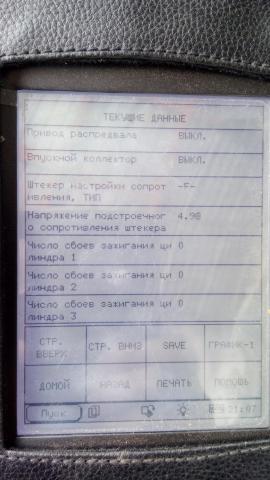 ТЕКУЩИЕ ДАННЫЕ
Привод распредвала ВЫКЛ.
Впускной коллектор ВЫКЛ.
Штекер настройки сопрот -F-
ивления, ТИП
Напряжение подстроечног 4.98
о сопротивления штекера
Число сбоев зажигания ци 0
линдра 1
Число сбоев зажигания ци 0
линдра 2
Число сбоев зажигания ци 0
линдра 3
СТР. ВВЕРХ СТР. ВНИЗ SAVE ГРАФИК-1
ДОМОЙ НАЗАД ПЕЧАТЬ ПОМОЩЬ
Пуск 21:07